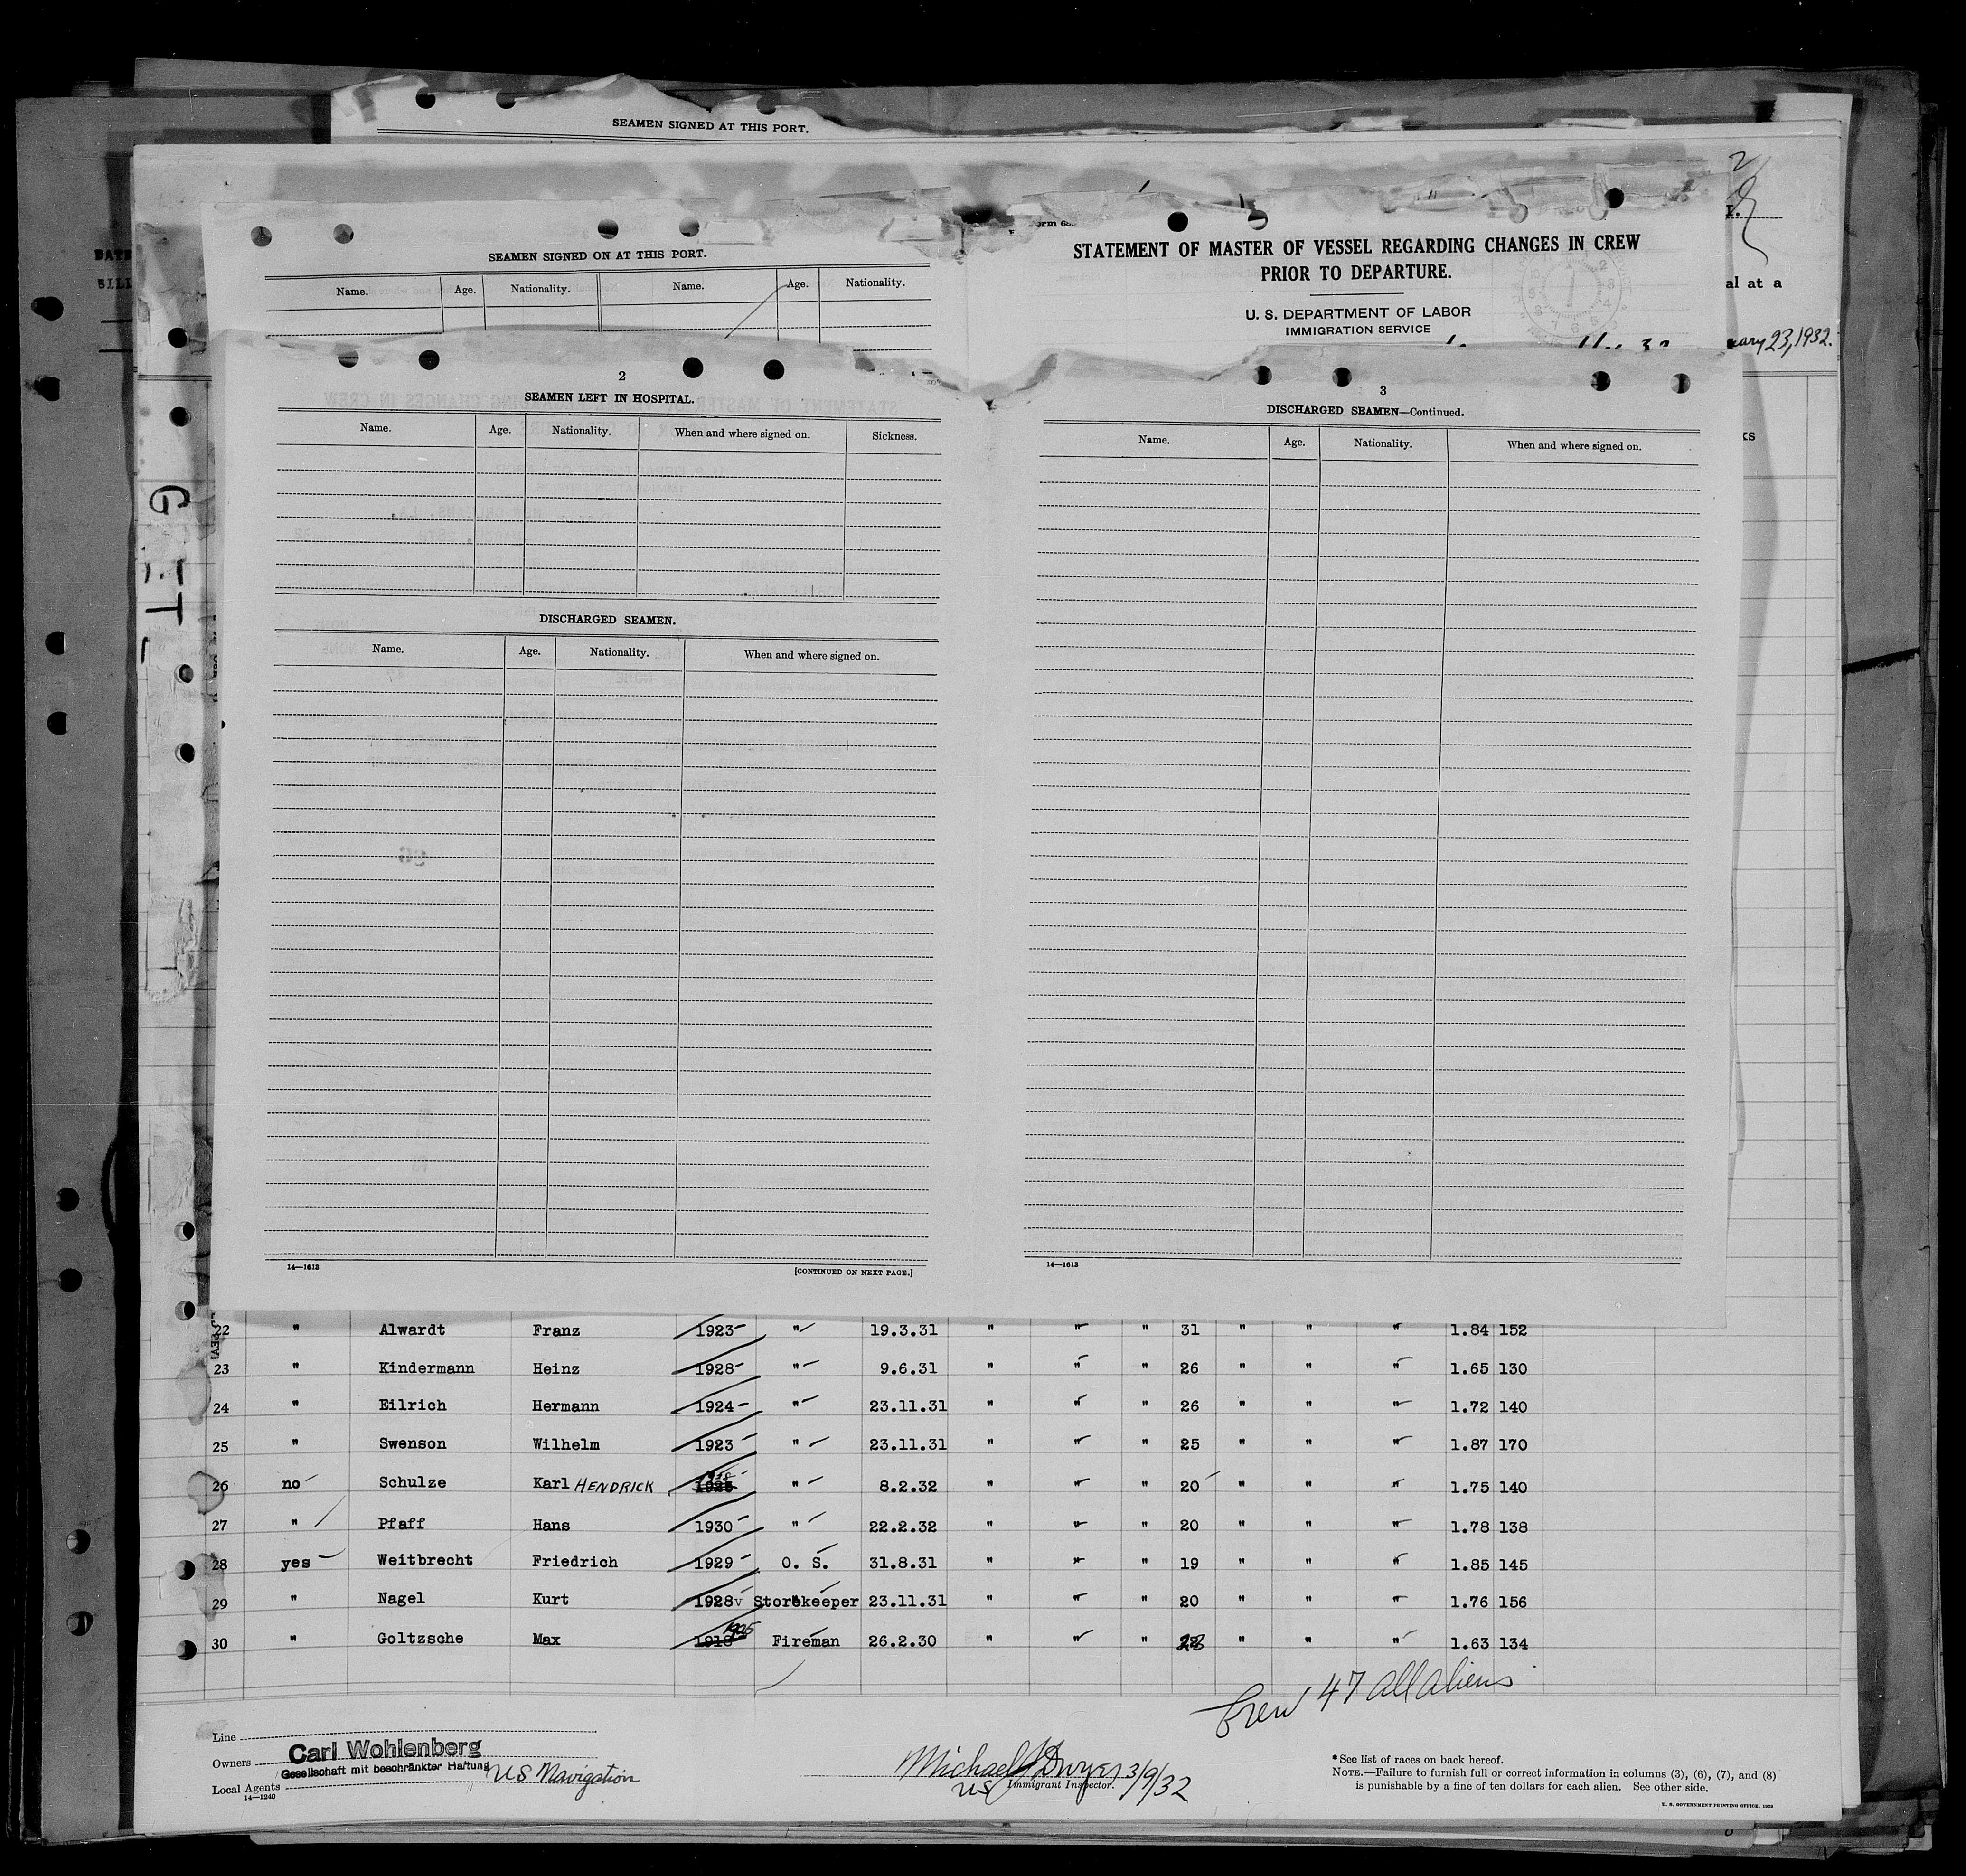 SEAMEN SIGNED AT THIS PORT.
SEAMEN SIGNED ON AT THIS PORT.
Name. Age. Nationality. Name. Age. Nationality.
STATEMENT OF MASTER OF VESSEL REGARDING CHANGES IN CREW
PRIOR TO DEPARTURE.
U. S. DEPARTMENT OF LABOR
IMMIGRATION SERVICE
al at a
23, 1932.
2
SEAMEN LEFT IN HOSPITAL.
Name. Age. Nationality. When and where signed on. Sickness.
DISCHARGED SEAMEN.
Name. Age. Nationality. When and where signed on.
14—1613
[CONTINUED ON NEXT PAGE.]
3
DISCHARGED SEAMEN—Continued.
Name. Age. Nationality. When and where signed on.
14—1613
22 " Alwardt Franz 1923 " 19.3.31 " " " 31 " " " 1.84 152
23 " Kindermann Heinz 1928 " 9.6.31 " " " 26 " " " 1.65 130
24 " Eilrich Hermann 1924 " 23.11.31 " " " 26 " " " 1.72 140
25 " Swenson Wilhelm 1923 " 23.11.31 " " " 25 " " " 1.87 170
26 no Schulze Karl HENDRICK " 8.2.32 " " " 20 " " " 1.75 140
27 " Pfaff Hans 1930 " 22.2.32 " " " 20 " " " 1.78 138
28 yes Weitbrecht Friedrich 1929 O. S. 31.8.31 " " " 19 " " " 1.85 145
29 " Nagel Kurt 1928 Storekeeper 23.11.31 " " " 20 " " " 1.76 156
30 " Goltzsche Max 1918 1925 Fireman 26.2.30 " " " " " " 1.63 134
Crew 47 all aliens
Line
Owners Carl Wohlenberg
Gesellschaft mit beschränkter Haftung
Local Agents US Navigation
14—1240
Michael J Dwyer 3/9/32
US Immigrant Inspector.
* See list of races on back hereof.
NOTE.—Failure to furnish full or correct information in columns (3), (6), (7), and (8)
is punishable by a fine of ten dollars for each alien. See other side.
U. S. GOVERNMENT PRINTING OFFICE. 1928